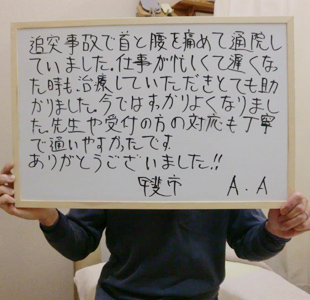 追突事故で首と腰を痛めて通院し
ていました。仕事が忙しくて遅くなっ
た時も治療していただきとても助
かりました。今ではすっかりよくなりまし
た。先生や受付の方の対応も丁寧
で通いやすかったです。
ありがとうございました!!
甲斐市 A.A